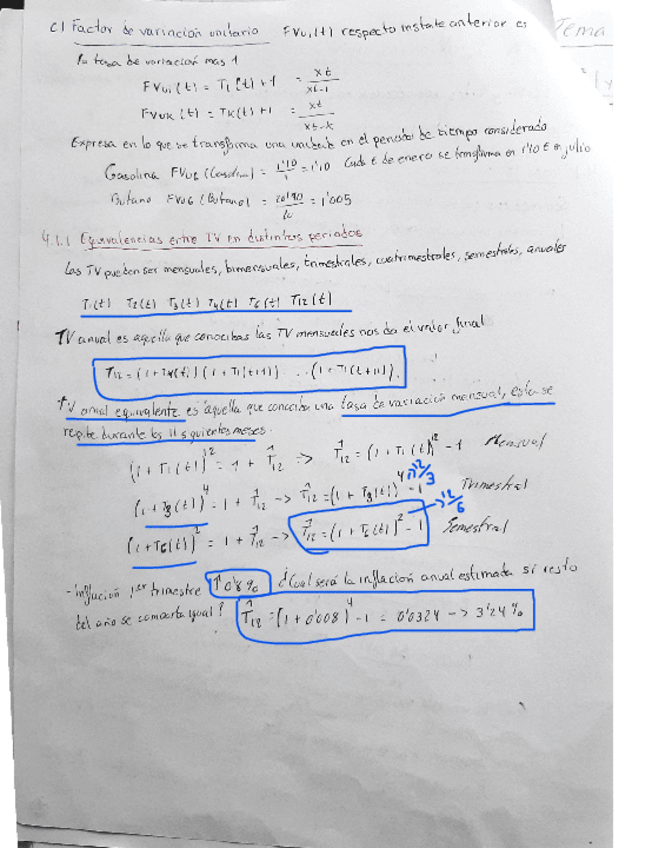 c) Factor de variación unitario FVu1(t) respecto instate anterior es
la tasa de variación mas 1
FVu1(t) = T1(t) + 1 = xt / xt-1
FVuk(t) = Tk(t) + 1 = xt / xt-k
Expresa en lo que se transforma una unidad en el periodo de tiempo considerado
Gasolina FVu6 (Gasolina) = 1'10 / 1 = 1'10 Cada € de enero se transforma en 1'10 € en julio
Butano FVu6 (Butano) = 20'90 / 20 = 1'005
4.1.1 Equivalencias entre TV en distintos periodos
Las TV pueden ser mensuales, bimensuales, trimestrales, cuatrimestrales, semestrales, anuales
T1(t) T2(t) T3(t) T4(t) T6(t) T12(t)
TV anual es aquella que conocidas las TV mensuales nos da el valor final
T12 = (1 + T1(t)) (1 + T1(t+1)) ... (1 + T1(t+11)).
TV anual equivalente es aquella que conocida una tasa de variación mensual, esta se
repite durante los 11 siguientes meses.
(1 + T1(t))^12 = 1 + T̂12 => T̂12 = (1 + T1(t))^12 - 1 Mensual
(1 + T3(t))^4 = 1 + T̂12 -> T̂12 = (1 + T3(t))^4 - 1 -> 12/3 Trimestral
(1 + T6(t))^2 = 1 + T̂12 -> T̂12 = (1 + T6(t))^2 - 1 -> 12/6 Semestral
- Inflación 1er trimestre ↑0'8% ¿Cual será la inflación anual estimada si resto
del año se comporta igual? T̂12 = (1 + 0'008)^4 - 1 = 0'0324 -> 3'24%
Tema